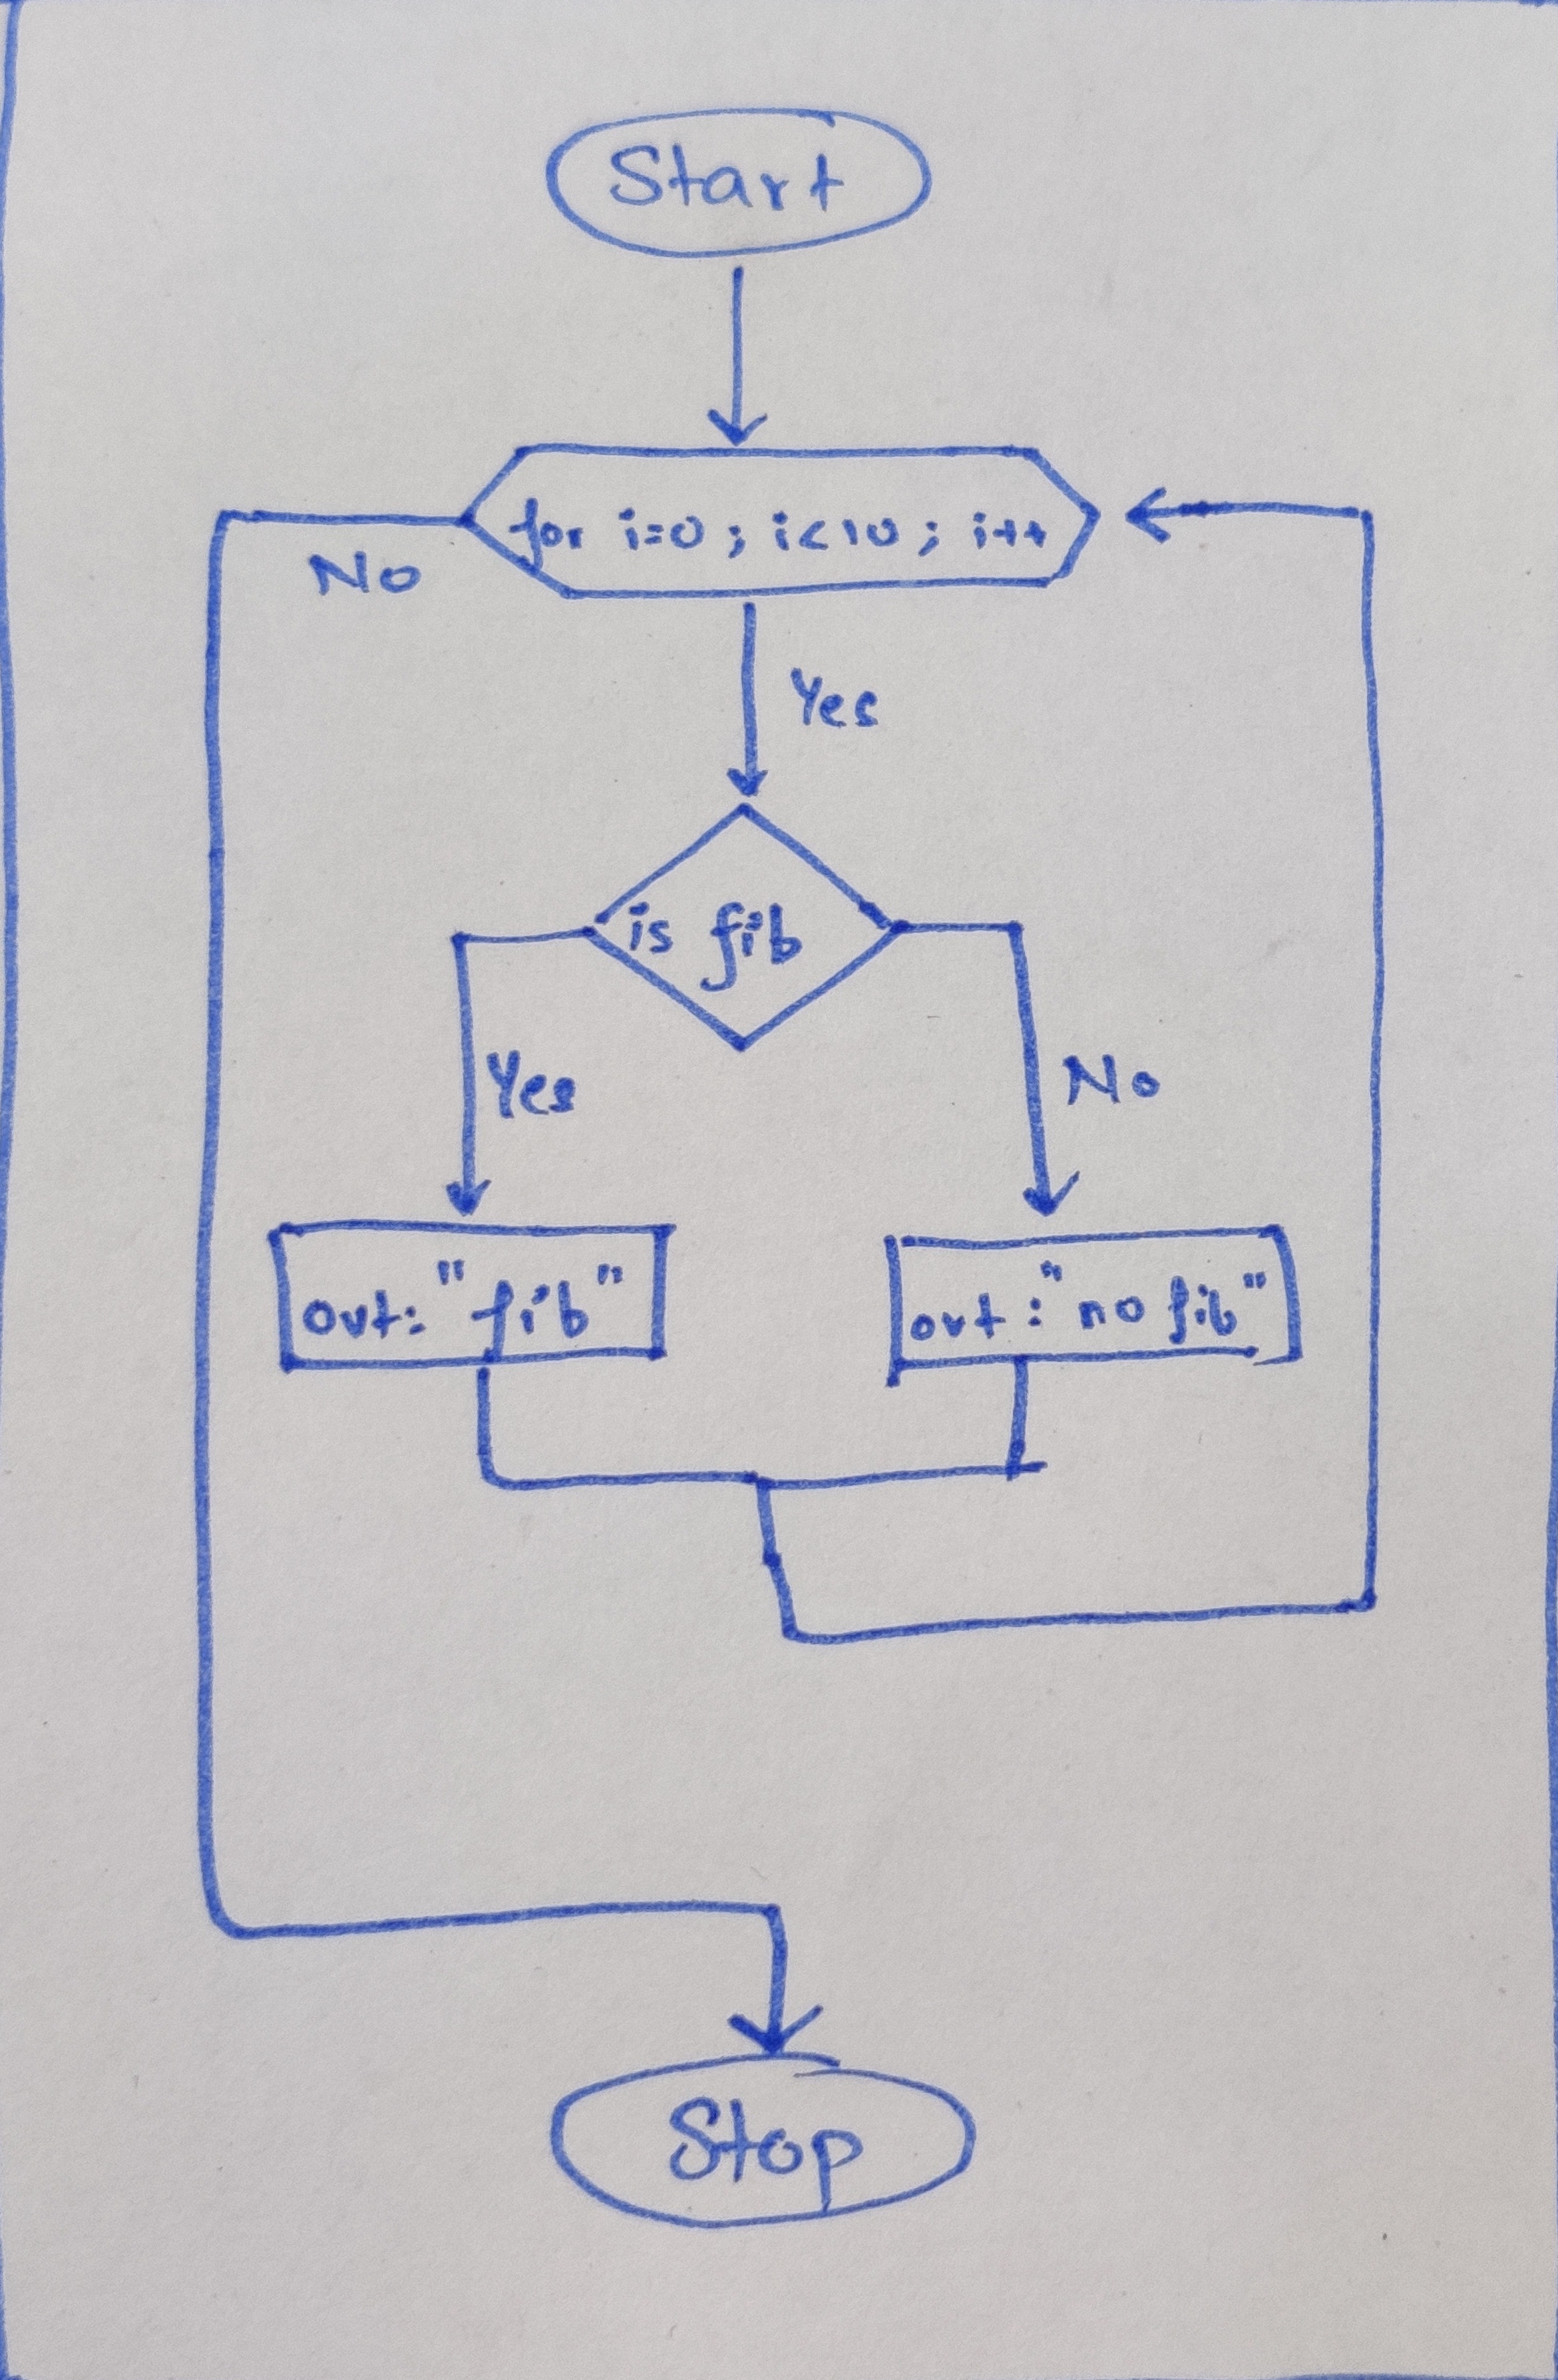 Start
for i=0 ; i<10 ; i++
No
Yes
is fib
Yes
No
out: "fib"
out : "no fib"
Stop